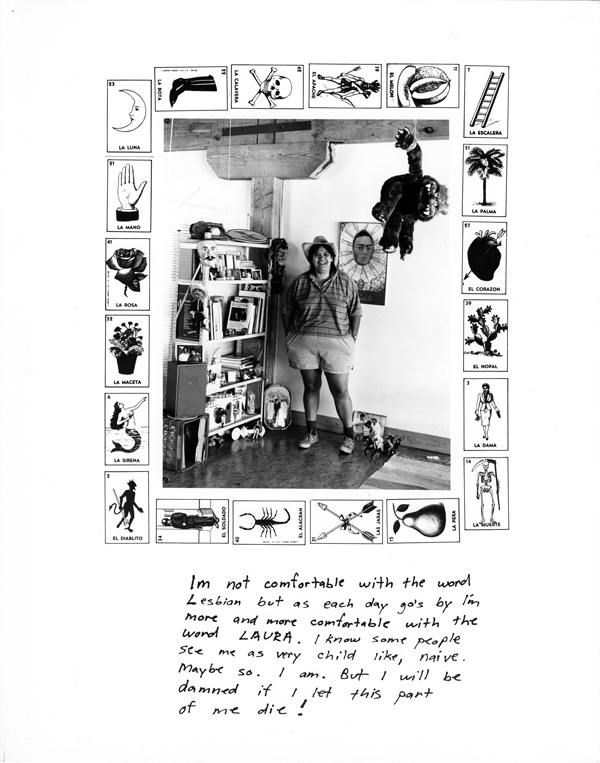 23
LA LUNA
LA BOTA
35
LA CALAVERA
42
EL APACHE
38
EL MELON
11
7
LA ESCALERA
21
LA MANO
51
LA PALMA
41
LA ROSA
27
EL CORAZON
52
LA MACETA
39
EL NOPAL
6
LA SIRENA
3
LA DAMA
2
EL DIABLITO
14
LA MUERTE
34
EL SOLDADO
40
EL ALACRAN
31
LAS JARAS
15
LA PERA
Im not comfortable with the word
Lesbian but as each day go's by I'm
more and more comfortable with the
word LAURA. I know some people
see me as very child like, naive.
Maybe so. I am. But I will be
damned if I let this part
of me die!